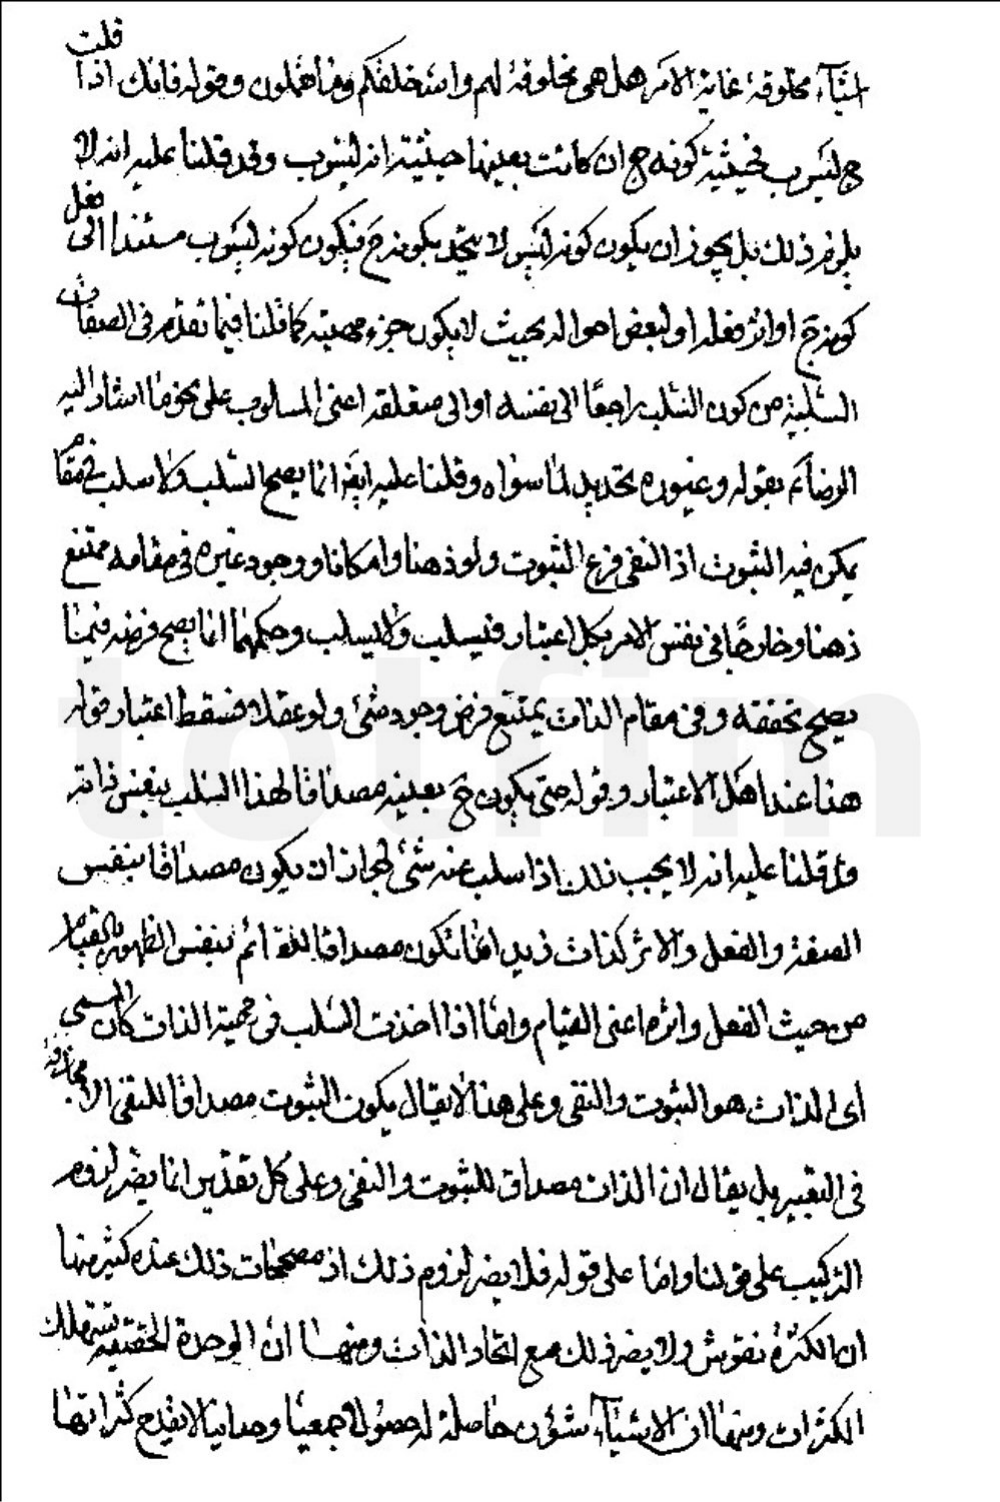 اشياء مخلوقة غاية الامر هل هى مخلوقة لهم والله خلقكم وما تعملون وقوله فانك اذا قلت
ج ليس ب فحيثية كونه ج ان كانت بعينها حيثية انه ليس ب وقد قلنا عليه انه لا
يلزم ذلك بل يجوز ان يكون كونه ليس لا يتحد بكونه ج فيكون كونه ليس ب مستندا الى فعل
كونه ج او اثر فعله او لبعض احواله بحيث لا يكون جزء مهيته كما قلنا فيما تقدم فى الصفات
السلبية من كون السلب راجعا الى نفسه او الى متعلقه اعنى المسلوب على نحو ما اشار اليه
الرضا ع بقوله وغيوره تحديد لما سواه وقلنا عليه ايضا انما يصح السلب ولا سلب فى مقام
يمكن فيه الثبوت اذ النفى فرع الثبوت ولو ذهنا وامكانا ووجود غيره فى مقامه ممتنع
ذهنا وخارجا فى نفس الامر بكل اعتبار فيسلب ولا يسلب وحكمهما انما يصح فرضه فيما
يصح تحققه وفى مقام الذات يمتنع فرض وجود شئ ولو عقلا فسقط اعتبار قوله
هنا عند اهل الاعتبار وقوله حتى يكون ج بعينه مصداقا لهذا السلب بنفس ذاته
وقد قلنا عليه انه لا يجب ذلك اذا سلب عنه شئ لجاز ان يكون مصداقا بنفس
الصفة والفعل والاثر كذات زيد انما تكون مصداقا للقائم بنفس الظهور بالقيام
من حيث الفعل واثره اعنى القيام واما اذا اخذت السلب فى مهية الذات كان المسمى
اى الذات هو الثبوت والنفى وعلى هذا لا يقال يكون الثبوت مصداقا للنفى الا مجازفة
فى التعبير بل يقال ان الذات مصداق للثبوت والنفى وعلى كل تقدير انما يضر لزوم
التركيب على قولنا واما على قوله فلا يضر لزوم ذلك اذ مصححات ذلك عنده كثير منها
ان الكثرة نقوش ولا يضر ذلك مع اتحاد الذات ومنها ان الوحدة الحقيقية تستهلك
الكثرات ومنها ان الاشياء شؤن حاصلة له حصولا جمعيا وحدانيا لا يقدح كثراتها